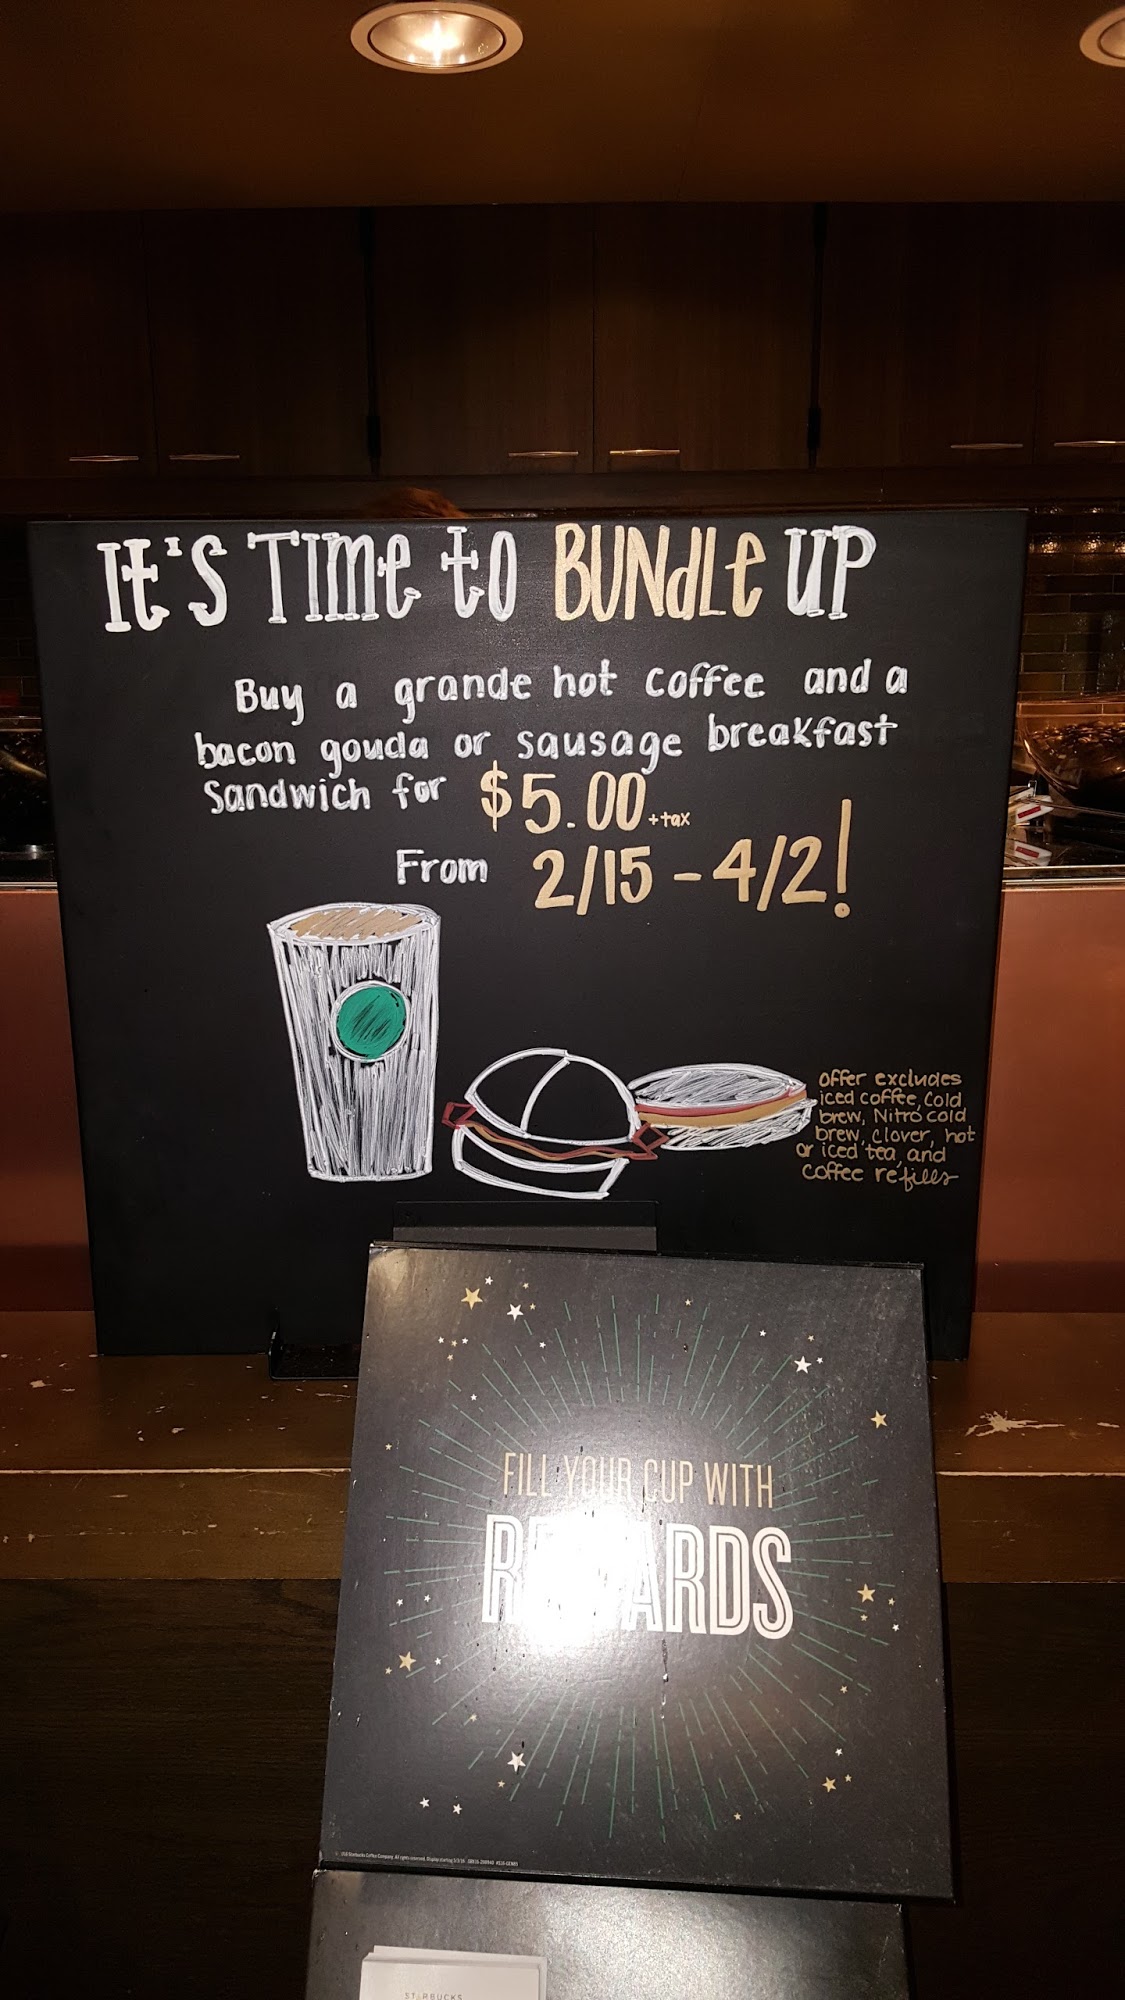 It's Time to BUNdLe UP
Buy a grande hot coffee and a
bacon gouda or sausage breakfast
Sandwich for $5.00 +tax
From 2/15 - 4/2!
offer excludes
iced coffee, Cold
brew, Nitro cold
brew, Clover, hot
or iced tea, and
coffee refills
FILL YOUR CUP WITH
REWARDS
Starbucks Coffee Company. All rights reserved.
STARBUCKS